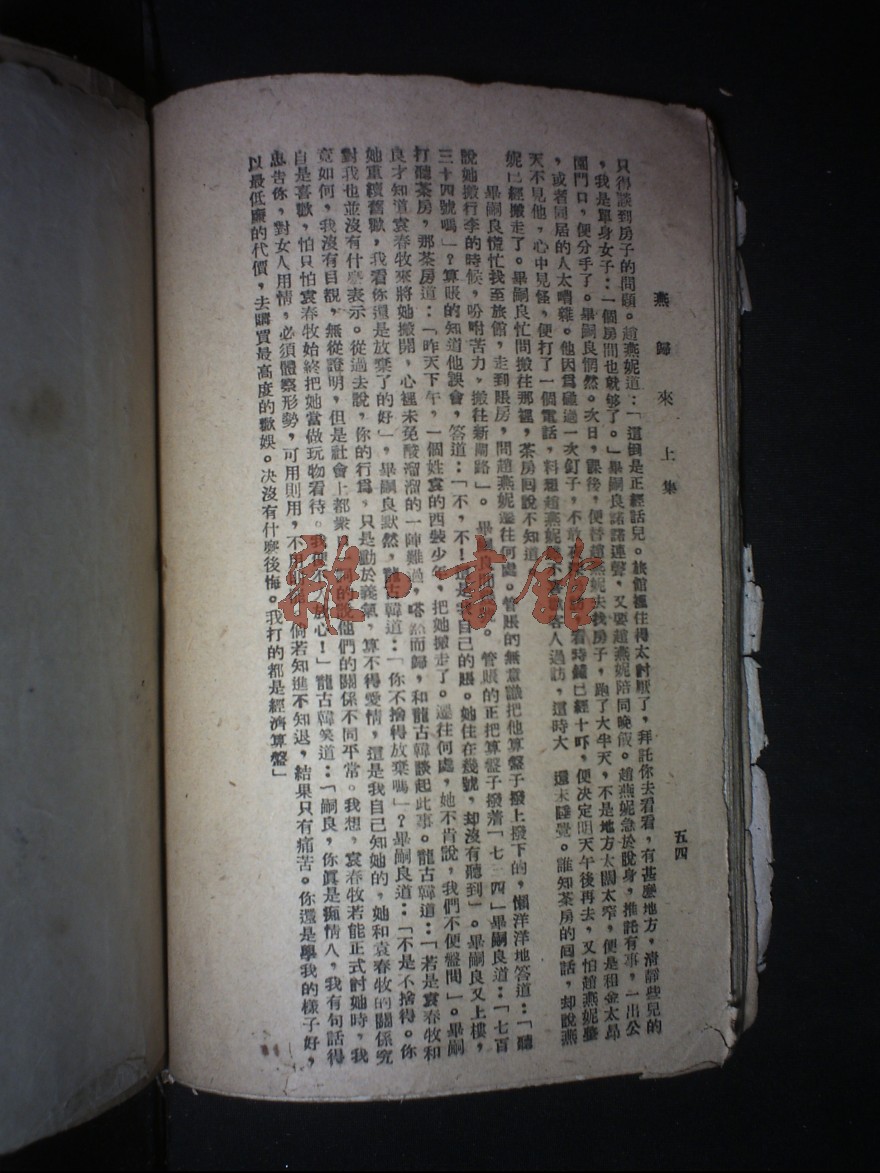 燕歸來上集
五四
只得談到房子的問題。趙燕妮道：「這倒是正經話兒。旅館裡住得太討厭了，拜託你去看看，有甚麼地方，清靜些兒的
，我是單身女子：一個房間也就够了。」畢嗣良諾諾連聲，又要趙燕妮陪同晚飯。趙燕妮急於脫身，推託有事，一出公
園門口，便分手了。畢嗣良惘然。次日，課後，便替趙燕妮去找房子，跑了大半天，不是地方太闊太窄，便是租金太昂
，或者同居的人太嘈雜。他因爲碰過一次釘子，不敢看時鐘已經十吓，便决定明天午後再去，又怕趙燕妮整
天不見他，心中見怪，便打了一個電話，料想趙燕妮不喜歡客人過訪，這時大還未睡覺。誰知茶房的回話，却說燕
妮已經搬走了。畢嗣良忙問搬往那裡，茶房回說不知道
畢嗣良慌忙找至旅館，走到賬房，問趙燕妮遷往何處。管賬的無意識把他算盤子撥上撥下的，懶洋洋地答道：「聽
說她搬行李的時候，吩咐苦力，搬往新閘路」。畢嗣良問。管賬的正把算盤子撥着「七三四」畢嗣良道：「七百
三十四號嗎」？算賬的知道他誤會，答道：「不，不！這是我自己的賬。她住在幾號，却沒有聽到」。畢嗣良又上樓，
打聽茶房，那茶房道：「昨天下午，一個姓袁的西裝少年，把她搬走了。遷往何處，她不肯說，我們不便盤問」。畢嗣
良才知道袁春牧來將她搬開，心裡未免酸溜溜的一陣難過，嗒然而歸，和龍古韓談起此事。龍古韓道：「若是袁春牧和
她重續舊歡，我看你還是放棄了的好」，畢嗣良默然，龍古韓道：「你不捨得放棄嗎」？畢嗣良道：「不是不捨得。你
對我也並沒有什麽表示。從過去說，你的行爲，只是動於義氣，算不得愛情，這是我自己知她的，她和袁春牧的關係究
竟如何，我沒有目覩，無從證明，但是社會上都衆口的說他們的關係不同平常。我想，袁春牧若能正式討她時，我
自是喜歡，怕只怕袁春牧始終把她當做玩物看待。我不放心！」龍古韓笑道：「嗣良，你眞是痴情人，我有句話得
忠告你，對女人用情，必須體察形勢，可用則用，不用倘若知進不知退，結果只有痛苦。你還是學我的樣子好，
以最低廉的代價，去購買最高度的歡娛。决沒有什麽後悔。我打的都是經濟算盤」
雜·書館